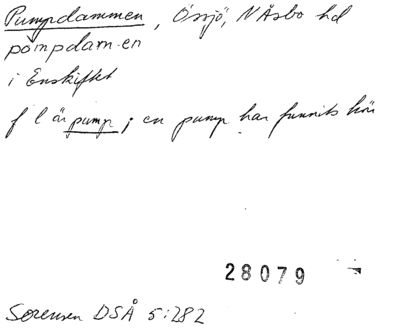 Pumpdammen, Össjö, N Åsbo hd
pömpdam-en
i Enskiftet
f l är pump; en pump har funnits här
28079
Sorensen DSÅ 5:282